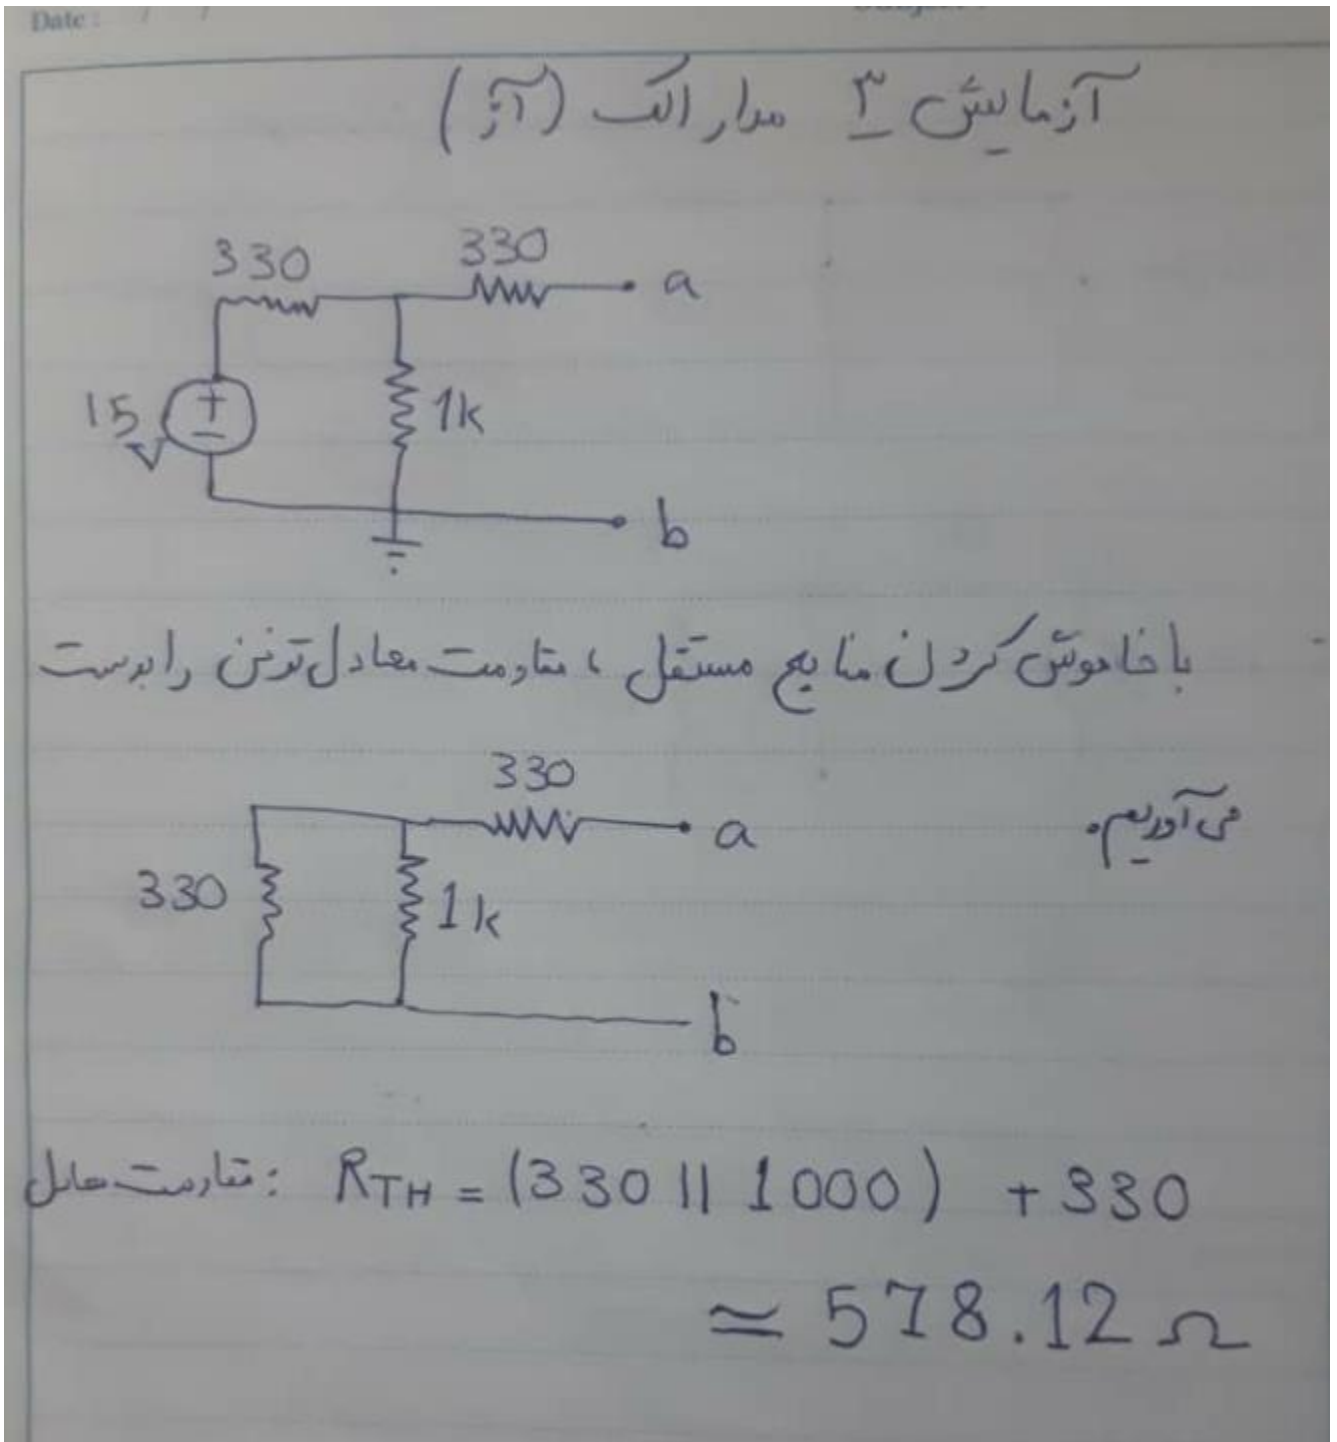 Date : / /
آزمایش ۳ مدار الک (آز)
330
330
a
15 V
+
−
1k
b
با خاموش کردن منابع مستقل ، مقاومت معادل تونن را بدست
می آوریم.
330
a
330
1k
b
مقاومت معادل : RTH = (330 || 1000) + 330
≃ 578.12 Ω